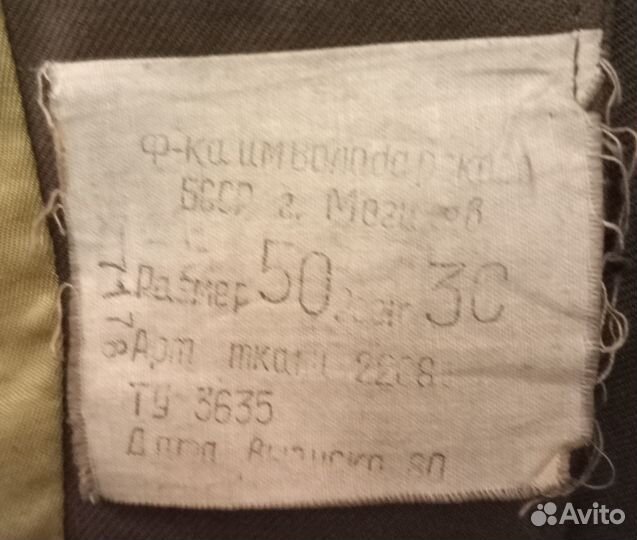 ф-ка им володарского
БССР г. Могилёв
Размер 50 рост 3С
Арт ткани
ТУ 3635
Дата выпуска 80
Avito